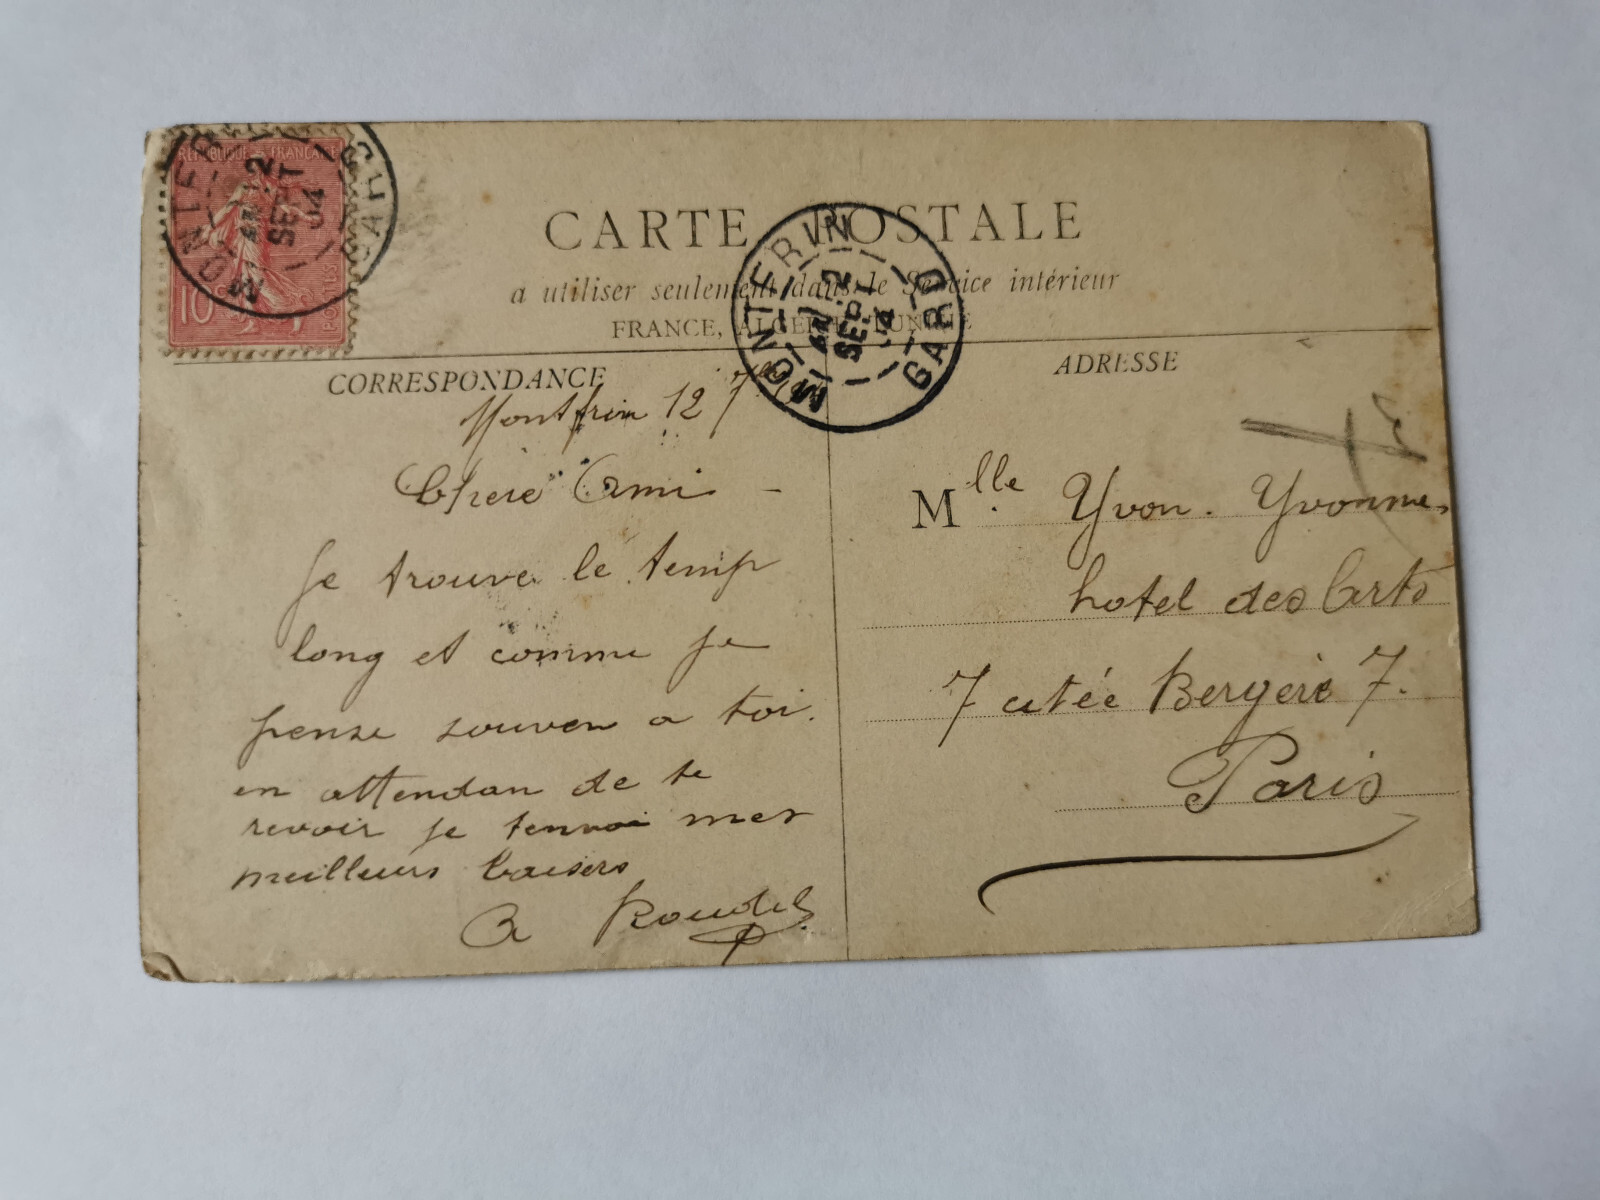 RÉPUBLIQUE FRANÇAISE
10c
POSTES
12
SEPT
04
GARD
CARTE POSTALE
a utiliser seulement dans le Service intérieur
FRANCE, ALGÉRIE, TUNISIE
MONTFRIN
12
SEPT
04
GARD
CORRESPONDANCE
ADRESSE
Montfrin 12 7
Chere Ami -
Je trouve le temp
long et comme je
pense souven a toi.
en attendan de te
revoir je tenvoi mes
meilleurs baisers
A Roudil
Mlle Yvon. Yvonne
hotel des Arts
7 citée Bergère 7.
Paris